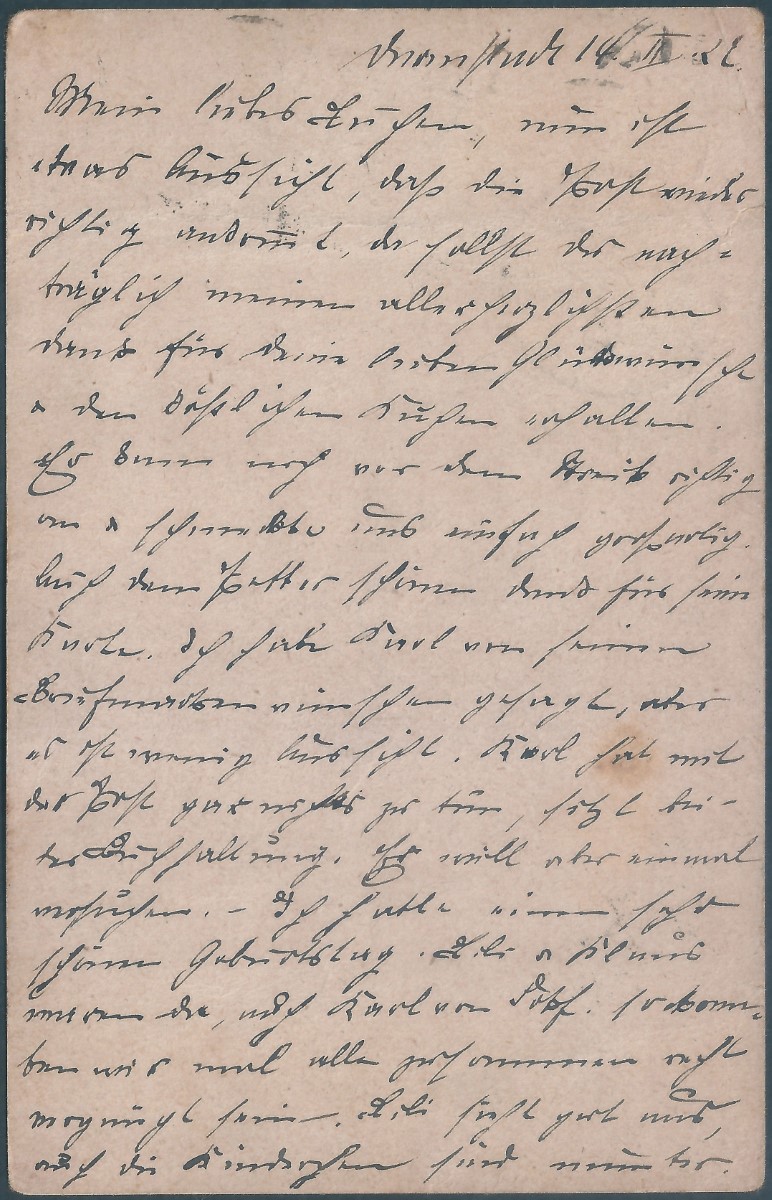 14. II. 22.
Mein liebes Luchen, nun ist
etwas Aussicht, daß die Post wieder
richtig ankomt, da sollst du nach-
träglich meinen allerherzlichsten
Dank für deine lieben Glückwünsche
& den köstlichen Kuchen erhalten.
Er kam noch vor dem Streik richtig
an & schmeckte uns einfach großartig.
Auch dem Vetter schönen Dank für seine
Karte. Ich habe Karl von seinen
Briefmarkenwünschen gesagt, aber
es ist wenig Aussicht. Karl hat mit
der Post gar nichts zu tun, sitzt bei
der Buchhaltung. Er will aber einmal
versuchen. – Ich hatte einen sehr
schönen Geburtstag. Lili & Klaus
waren da, auch Karl von so konn-
ten wir mal alle zusammen recht
vergnügt sein. Lili sieht gut aus,
auch die Kinderchen sind munter.